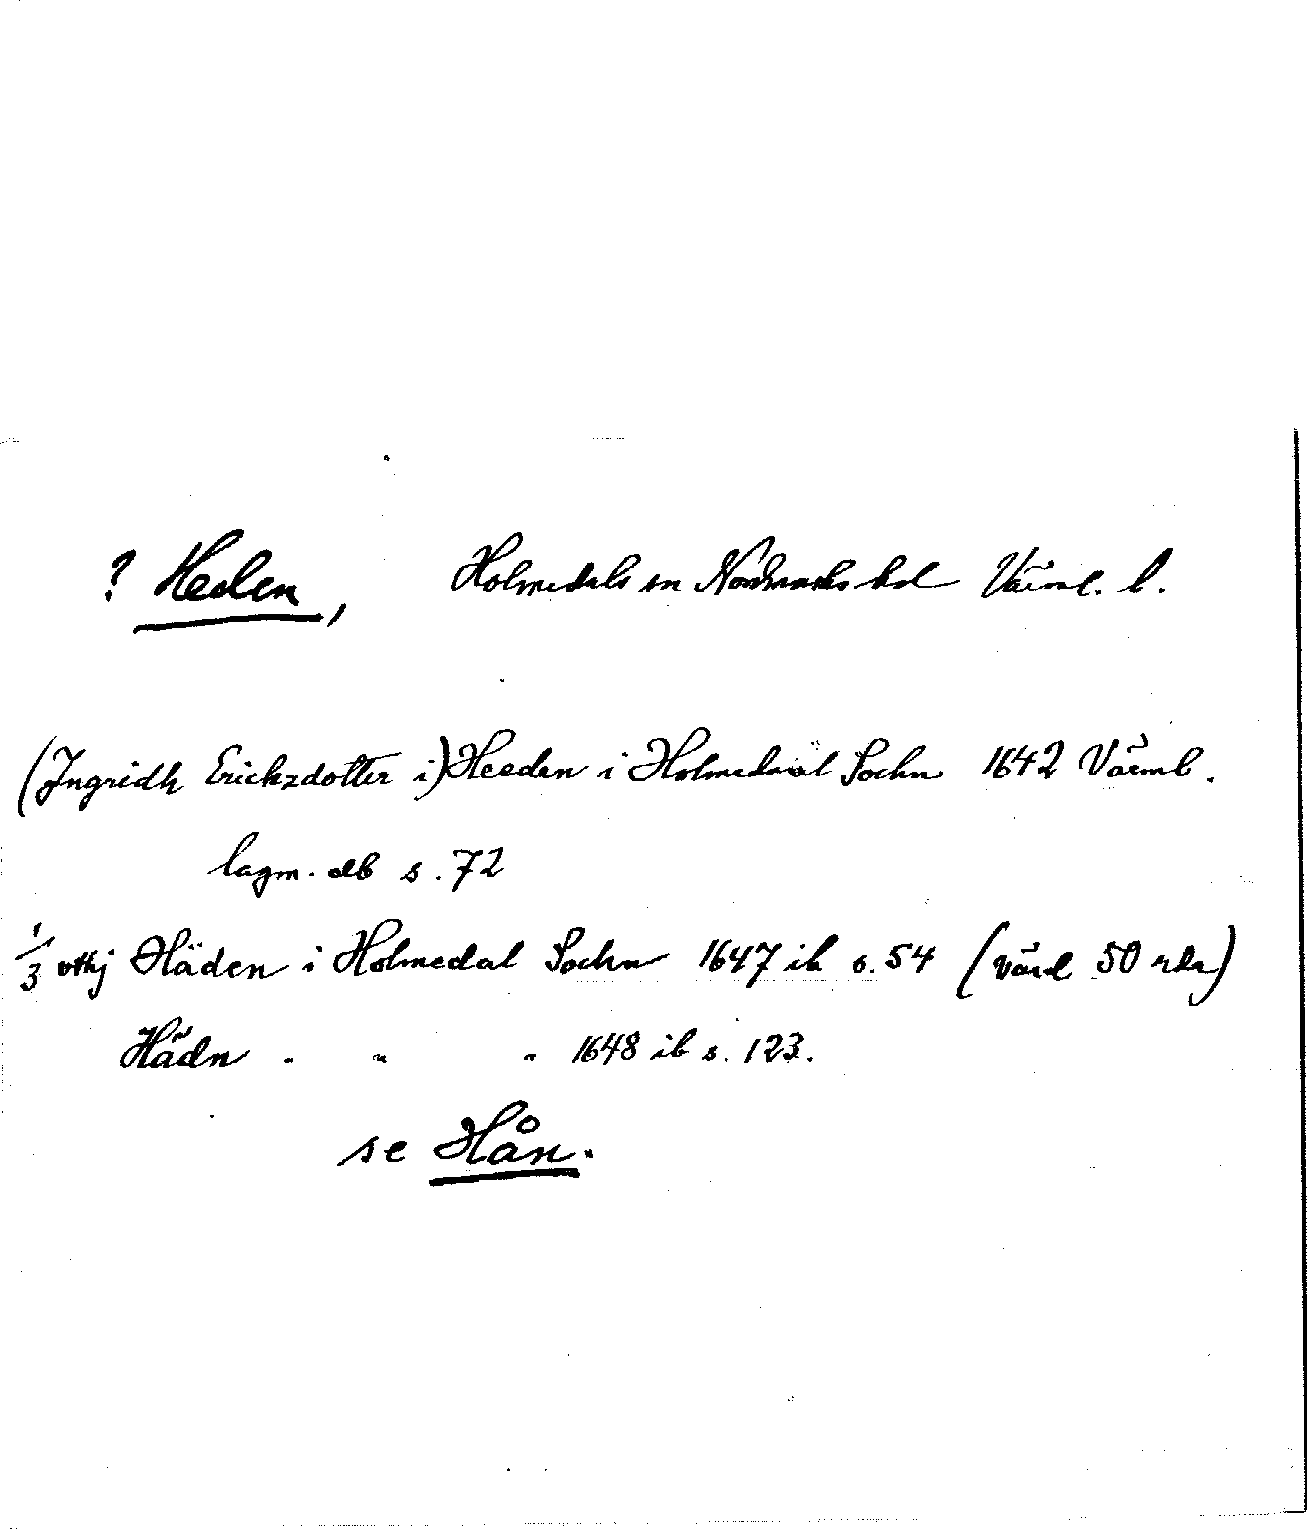 ? Heden, Holmedals sn Nordmarks hd Värml. l.
(Ingridh Erichzdotter i) Heeden i Holmedaal Sochn 1642 Värml.
lagm. db s. 72
1/3 vthj Häden i Holmedal Sochn 1647 ib s. 54 (värd 50 rdr)
Hädn " " " 1648 ib s. 123.
se Hån.